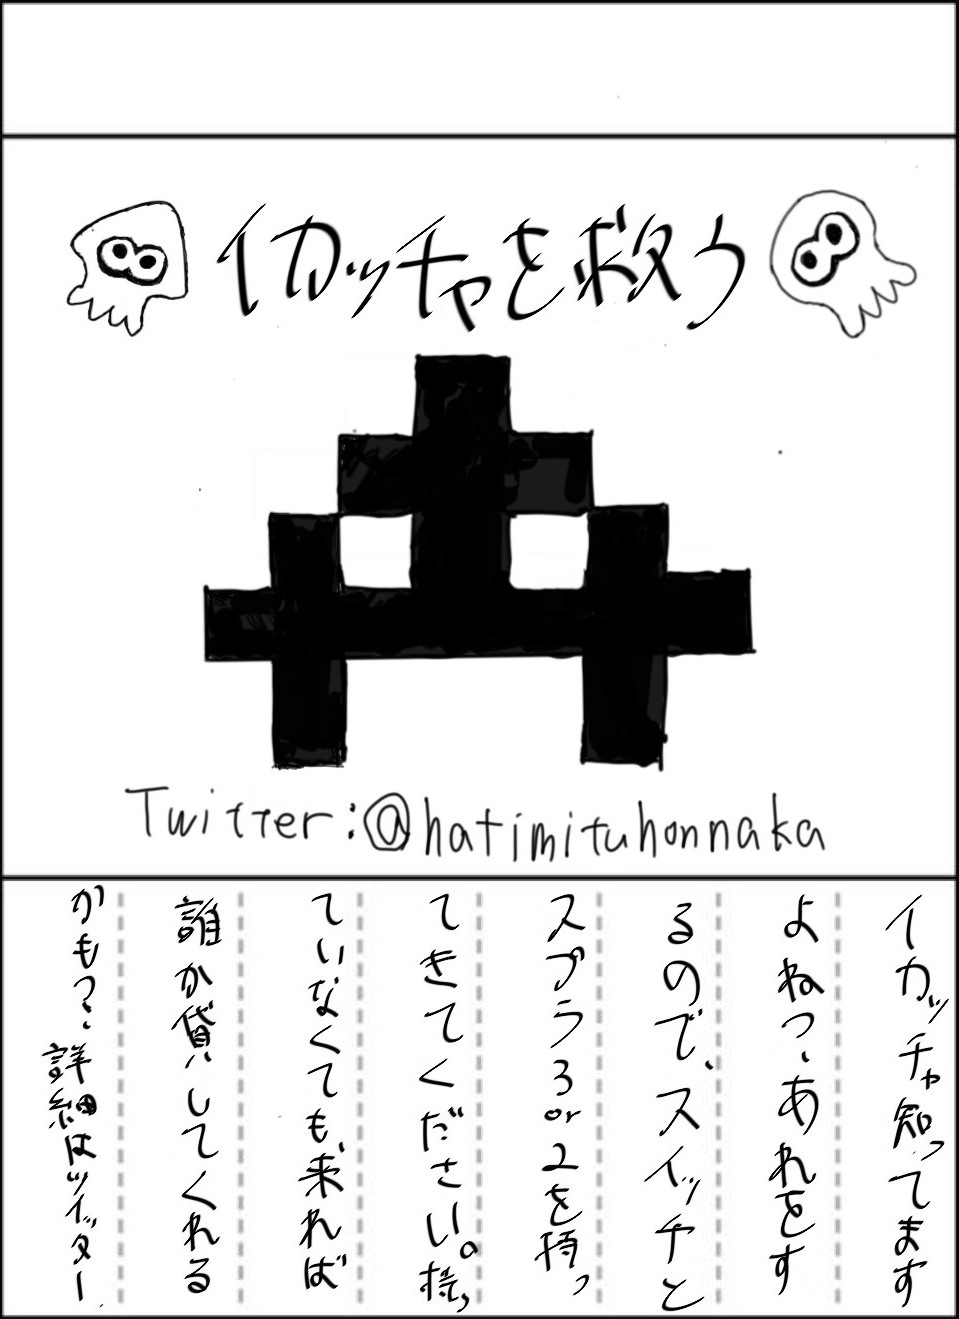 イカッチャを救う
Twitter:@hatimituhonnaka
イカッチャ知ってます
よねっ、あれをす
るので、スイッチと
スプラ3or2を持っ
てきてください。持っ
ていなくても、来れば
誰か貸してくれる
かもっ、詳細はツイッター